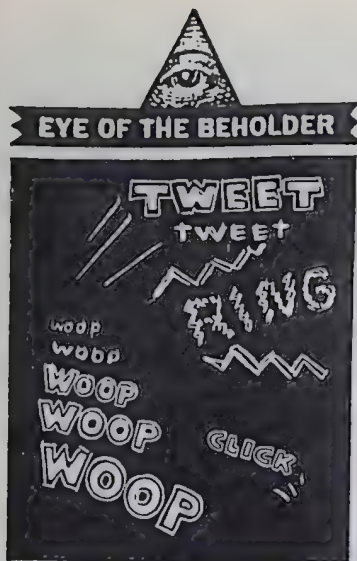 EYE OF THE BEHOLDER
TWEET
TWEET
RING
woop
woop
WOOP
WOOP
WOOP
CLICK